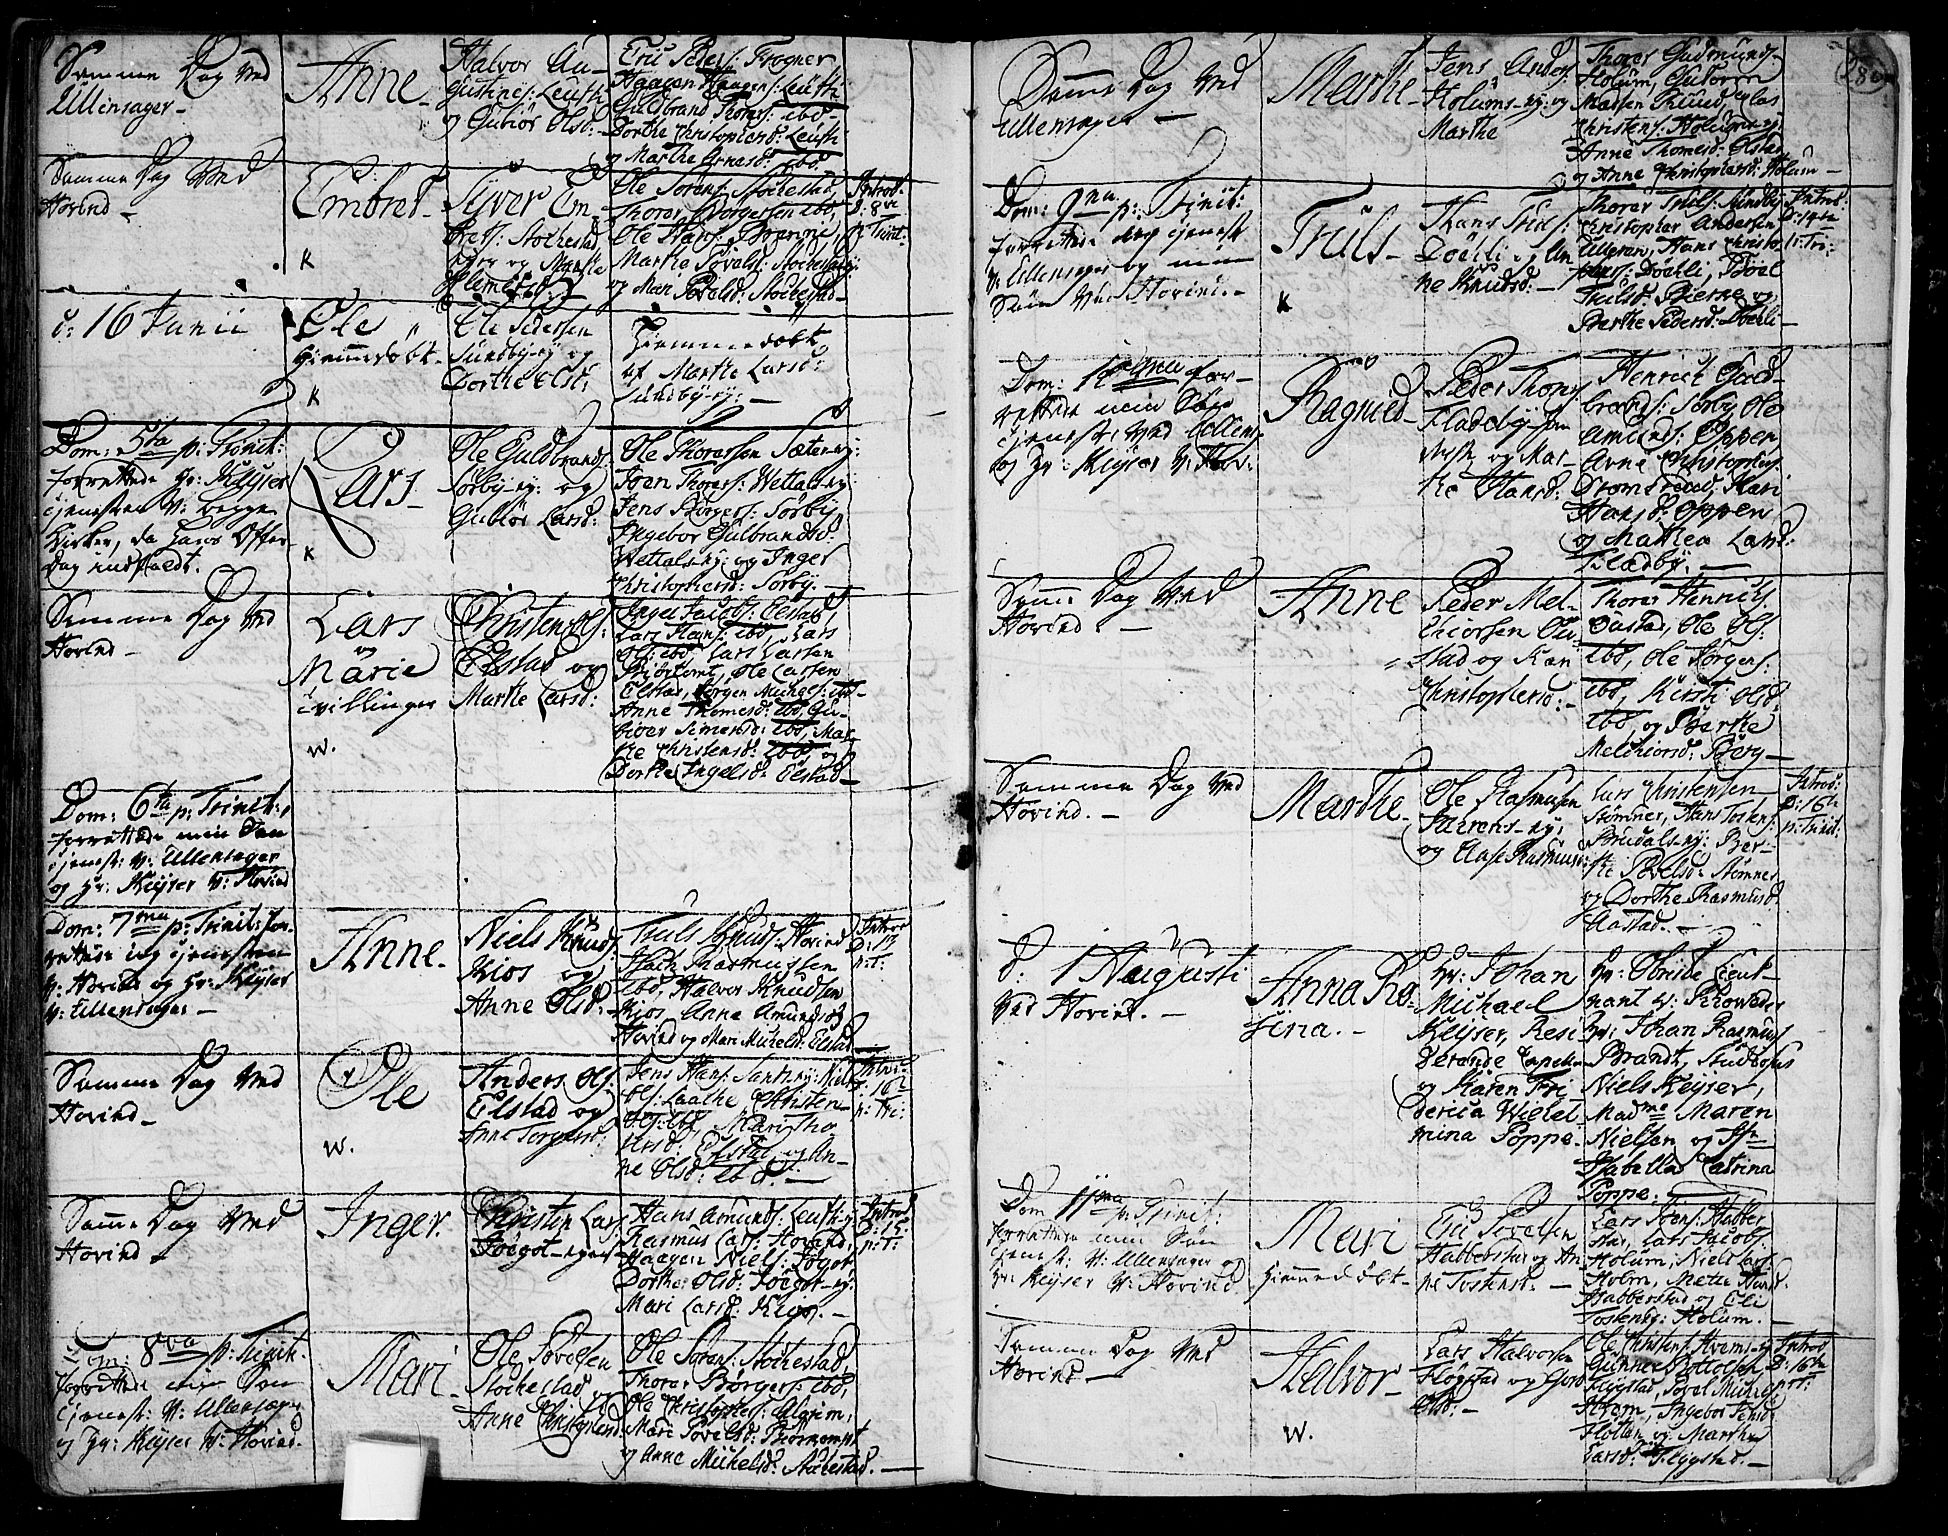 Samme Dag ved
Ullensager-
Anne-
Halvor Au-
gustines: Leufti
og Gubiør Olsd:-
Eric Peders: Frogner
Haagen Haagens: Leufti
Guldbrand Thores: ibd-
Dorthe Christophersd: Leufti
og Marthe Arnesd: ibd
Samme Dag ved
Hovind-
Embret-
K
Siver Em-
brets: Stochestad
Ole Sorens: Stochestad,
Thorer Børgersen ibd,
Ole Hans:
Marthe Povelsd: Stochestad
og Mari Povelsd: Stochestad-
Introd:
D: 8va
p: Trinit:
d: 16 Junii
Ole
hiemmedøbt-
K
Ole Pedersen
Sundby-ey: og
Dorthe Olsd:
Hiemmedøbt
af Marthe Larsd:
Sundby-ey: -
Dom: 5ta p: Trinit:
forrettede Hr: Keyser
tjenesten v: begge
Kirker, da hans Offer-
Dag indfaldt.
Lars-
K
Ole Guldbrands:
Sørby-ey: og
Gubiør Larsd:
Ole Thoresen Sæter-ey:
Joen Thores: Wettal-ey:
Jens Børgers: Sørby
Ingebor Gulbrandsd:
Wettal-ey: og Inger
Christophersd: Sørby.-
Samme Dag ved
Hovind-
Lars
og
Marie
tvillinger
W.
Christen Ols:
Elstad og
Marthe Larsd:
Lars Hans: ibd, Lars
Ols: ibd, Lars Larsen
Ole Larsen
Elstad,
Anne Thomesd: ibd, Gu-
biøer Simensd: ibd, Mar-
the Christensd: ibd og
Dorthe Ingelsd: Elstad-
Dom: 6ta p: Trinit:,
forrettede min Søn
tjenest: v: Ullensager
og Hr: Keyser v: Hovind
Dom: 7ma p: Trinit: for-
rettede ieg tjenesten
v: Hovind og Hr: Keyser
v: Ullensager-
Anne-
Niels Knuds:
Kios og
Anne Olsd:-
Truls Knuds: Hovind
Isach Rasmussen
ibd, Halvor Knudsen
Kios, Anne Amundsd:
Hovind og Mari Michelsd: Elstad
Introd
D: 13
p: T:
Samme Dag ved
Hovind-
Ole
W.
Anders Ols:
Elstad og
Anne Torgersd:
Jens Hans: Niels
Ols: Laache Christen
Ols: ibd, Mari
Elstad og An-
ne Olsd: ibd.-
Introd:
D: 16
p: Tr:
Samme Dag ved
Hovind-
Inger.
Christen Lars:
Hans Amunds: Leufti-ey:
Rasmus Lars: Hovind,
Haagen Niels: Fogot
Dorthe Olsd: Fogot-ey:
Mari Larsd: Kios.-
Introd
D: 15
p: T:
Dom: 8va p: Trinit.
forrettede min Søn
tjenest: v: Ullensager
og Hr: Keyser v: Hovind.
Mari-
Ole Povelsen
Stochestad og
Anne Christophersd:
Ole Sorens: Stochestad,
Thorer Børgers: ibd,
Ole Christophers: Algrim,
Mari Povelsd:
og Anne Michelsd: Stochestad.-
28
Samme Dag ved
Ullensager-
Marthe-
Jens Anders:
Holums-ey: og
Marthe
Thorer Gudmunds-
Holum, Guttorm
Madsen Ruud, Clas
Christens: Holums-ey:
Anne Thomesd: Elstad
og Anne Christophersd: Holum-
Dom: 9na p: Trinit:
forrettede ieg tjenest
v: Ullensager og min
Søn ved Hovind.-
Truls-
K
Hans Truls:
Døehli og An-
ne Knudsd:-
Thorer Truls: Sundby
Christopher Andersen
Ullern, Hans Christo-
phers: Døehli, Boel
Trulsd: Bierne og
Berthe Pedersd: Døehli-
Introd:
D: 14te
p: Tr:
Dom: 10ma for-
rettede min Søn
tjenest: ved Ullens:
og Hr: Keyser v: Hov:
Ragnild-
Peder Thores
Fladeby-
og Mar-
the Hansd:
Henrich Guld-
brands: Sørby, Ole
Amunds: Oppen
Arne Christophers:
Dromsrud, Kari
Hansd: Oppen
og Mathea Larsd:
Fladby.-
Samme Dag ved
Hovind.-
Anne
Peder Mel-
chiorsen Ou-
stad og Kari
Christophersd:-
Thorer Henrics:
Oustad, Ole Ols:
ibd, Ole Jørgens:
ibd, Kirsti Olsd:
ibd og Berthe
Melchiorsd: Berg-
Samme Dag ved
Hovind.-
Marthe-
Ole Rasmusen
Furrens-ey:
og Aase Rasmusd:
Lars Christensen
Stømner, Hans Tostens:
Brudals-ey: Ber-
the Povelsd: Stømner
og Dorthe Rasmusd:
Aastad.-
Introd:
D: 16te
p: Trinit:
d: 1 Augusti
ved Hovind.-
Anna Ro-
sina.-
Hr: Johan
Michael
Keyser, Resi-
derende Capellan
og Karen Fri-
derica Wilhel-
mina Poppe.
Hr: Obriste Lieut-
nant v: Rhoweder
Hr: Johan Rasmus
Brandt, Studiosus
Niels Keyser,
Madme Maren
Nielsen og Jfr
Isabella Catrina
Poppe.-
Dom 11ma p: Trinit:
forrettede min Søn
tjenest: v: Ullensager og
Hr: Keyser v: Hovind.
Mari
hiemmedøbt-
Eric Povelsen
Habberstad og An-
ne Tostensd:-
Lars Joens: Habber-
stad, Lars Jacobs:
Holum, Niels Lars:
Holm, Mette
Habberstad og Eli
Tostensd: Holum.-
Samme Dag ved
Hovind-
Halvor-
W.
Lars Halvorsen
Fløgstad og Guro
Olsd:-
Ole Christens: Hvams-ey:
Gunner Bottolsen
Fløgstad, Povel Michels:
Hvam, Ingebor Jensd:
Flottan og Marthe
Larsd: Fløgstad.-
Introd
D: 16te
p: T: